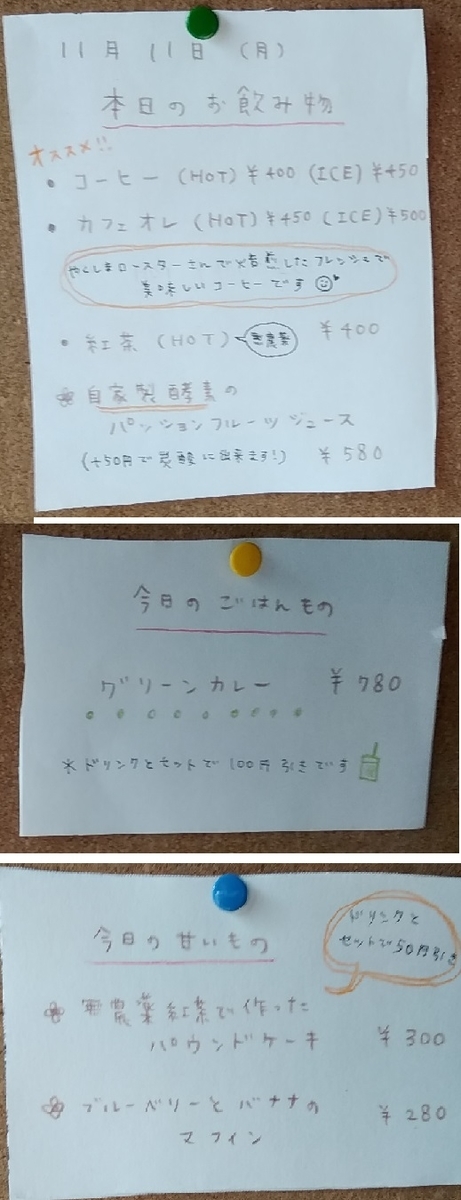 11月 11日 (月)
本日のお飲み物
オススメ!!
• コーヒー (HOT) ¥400 (ICE) ¥450
• カフェオレ (HOT) ¥450 (ICE) ¥500
やくしまロースターさんで焙煎したフレンチで
美味しいコーヒーです
• 紅茶 (HOT) 無農薬 ¥400
自家製酵素の
パッションフルーツジュース
(+50円で炭酸に出来ます!) ¥580
今日のごはんもの
グリーンカレー ¥780
*ドリンクとセットで100円引きです
ドリンクと
セットで50円引き
今日の甘いもの
無農薬紅茶で作った
パウンドケーキ ¥300
ブルーベリーとバナナの ¥280
マフィン